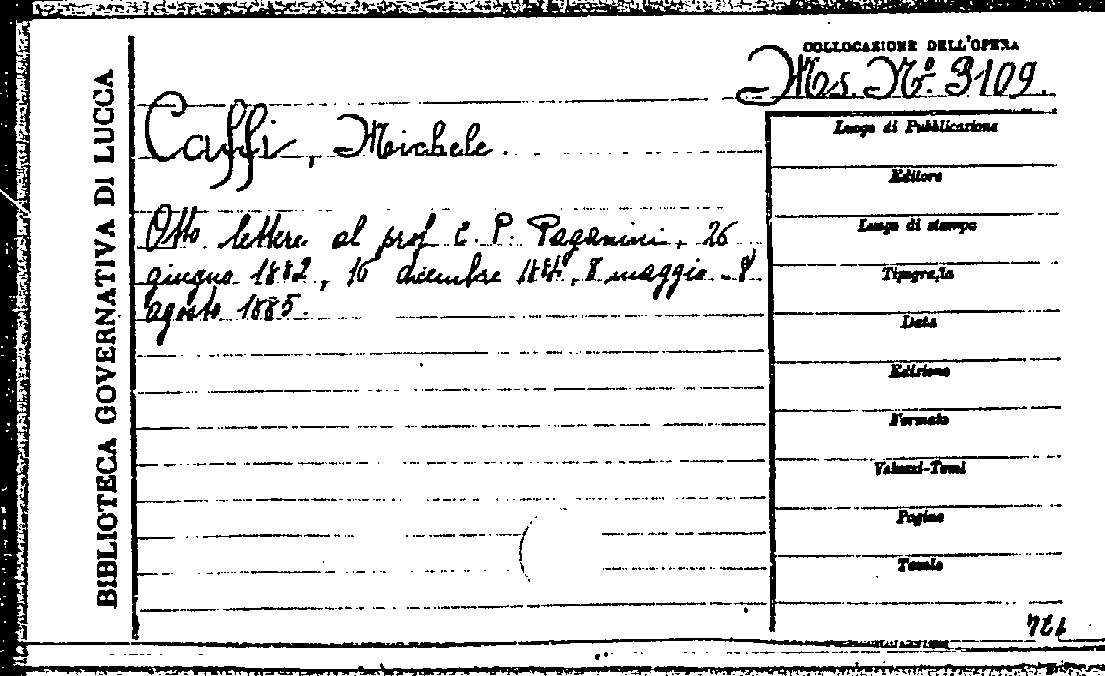 BIBLIOTECA GOVERNATIVA DI LUCCA
COLLOCAZIONE DELL'OPERA
Ms. Nº. 3109.
Caffi, Michele.
Otto lettere al prof. C. P. Paganini, 26
giugno 1882, 16 dicembre 1884, 8 maggio - 8
agosto 1885.
Luogo di Pubblicazione
Editore
Luogo di stampa
Tipografia
Data
Edizione
Formato
Volumi-Tomi
Pagine
Tavole